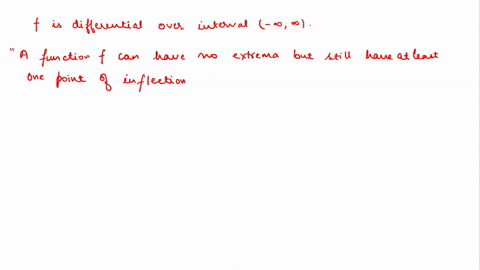 f is differential over interval (-∞, ∞).
"A function f can have no extrema but still have atleast
one point of inflection